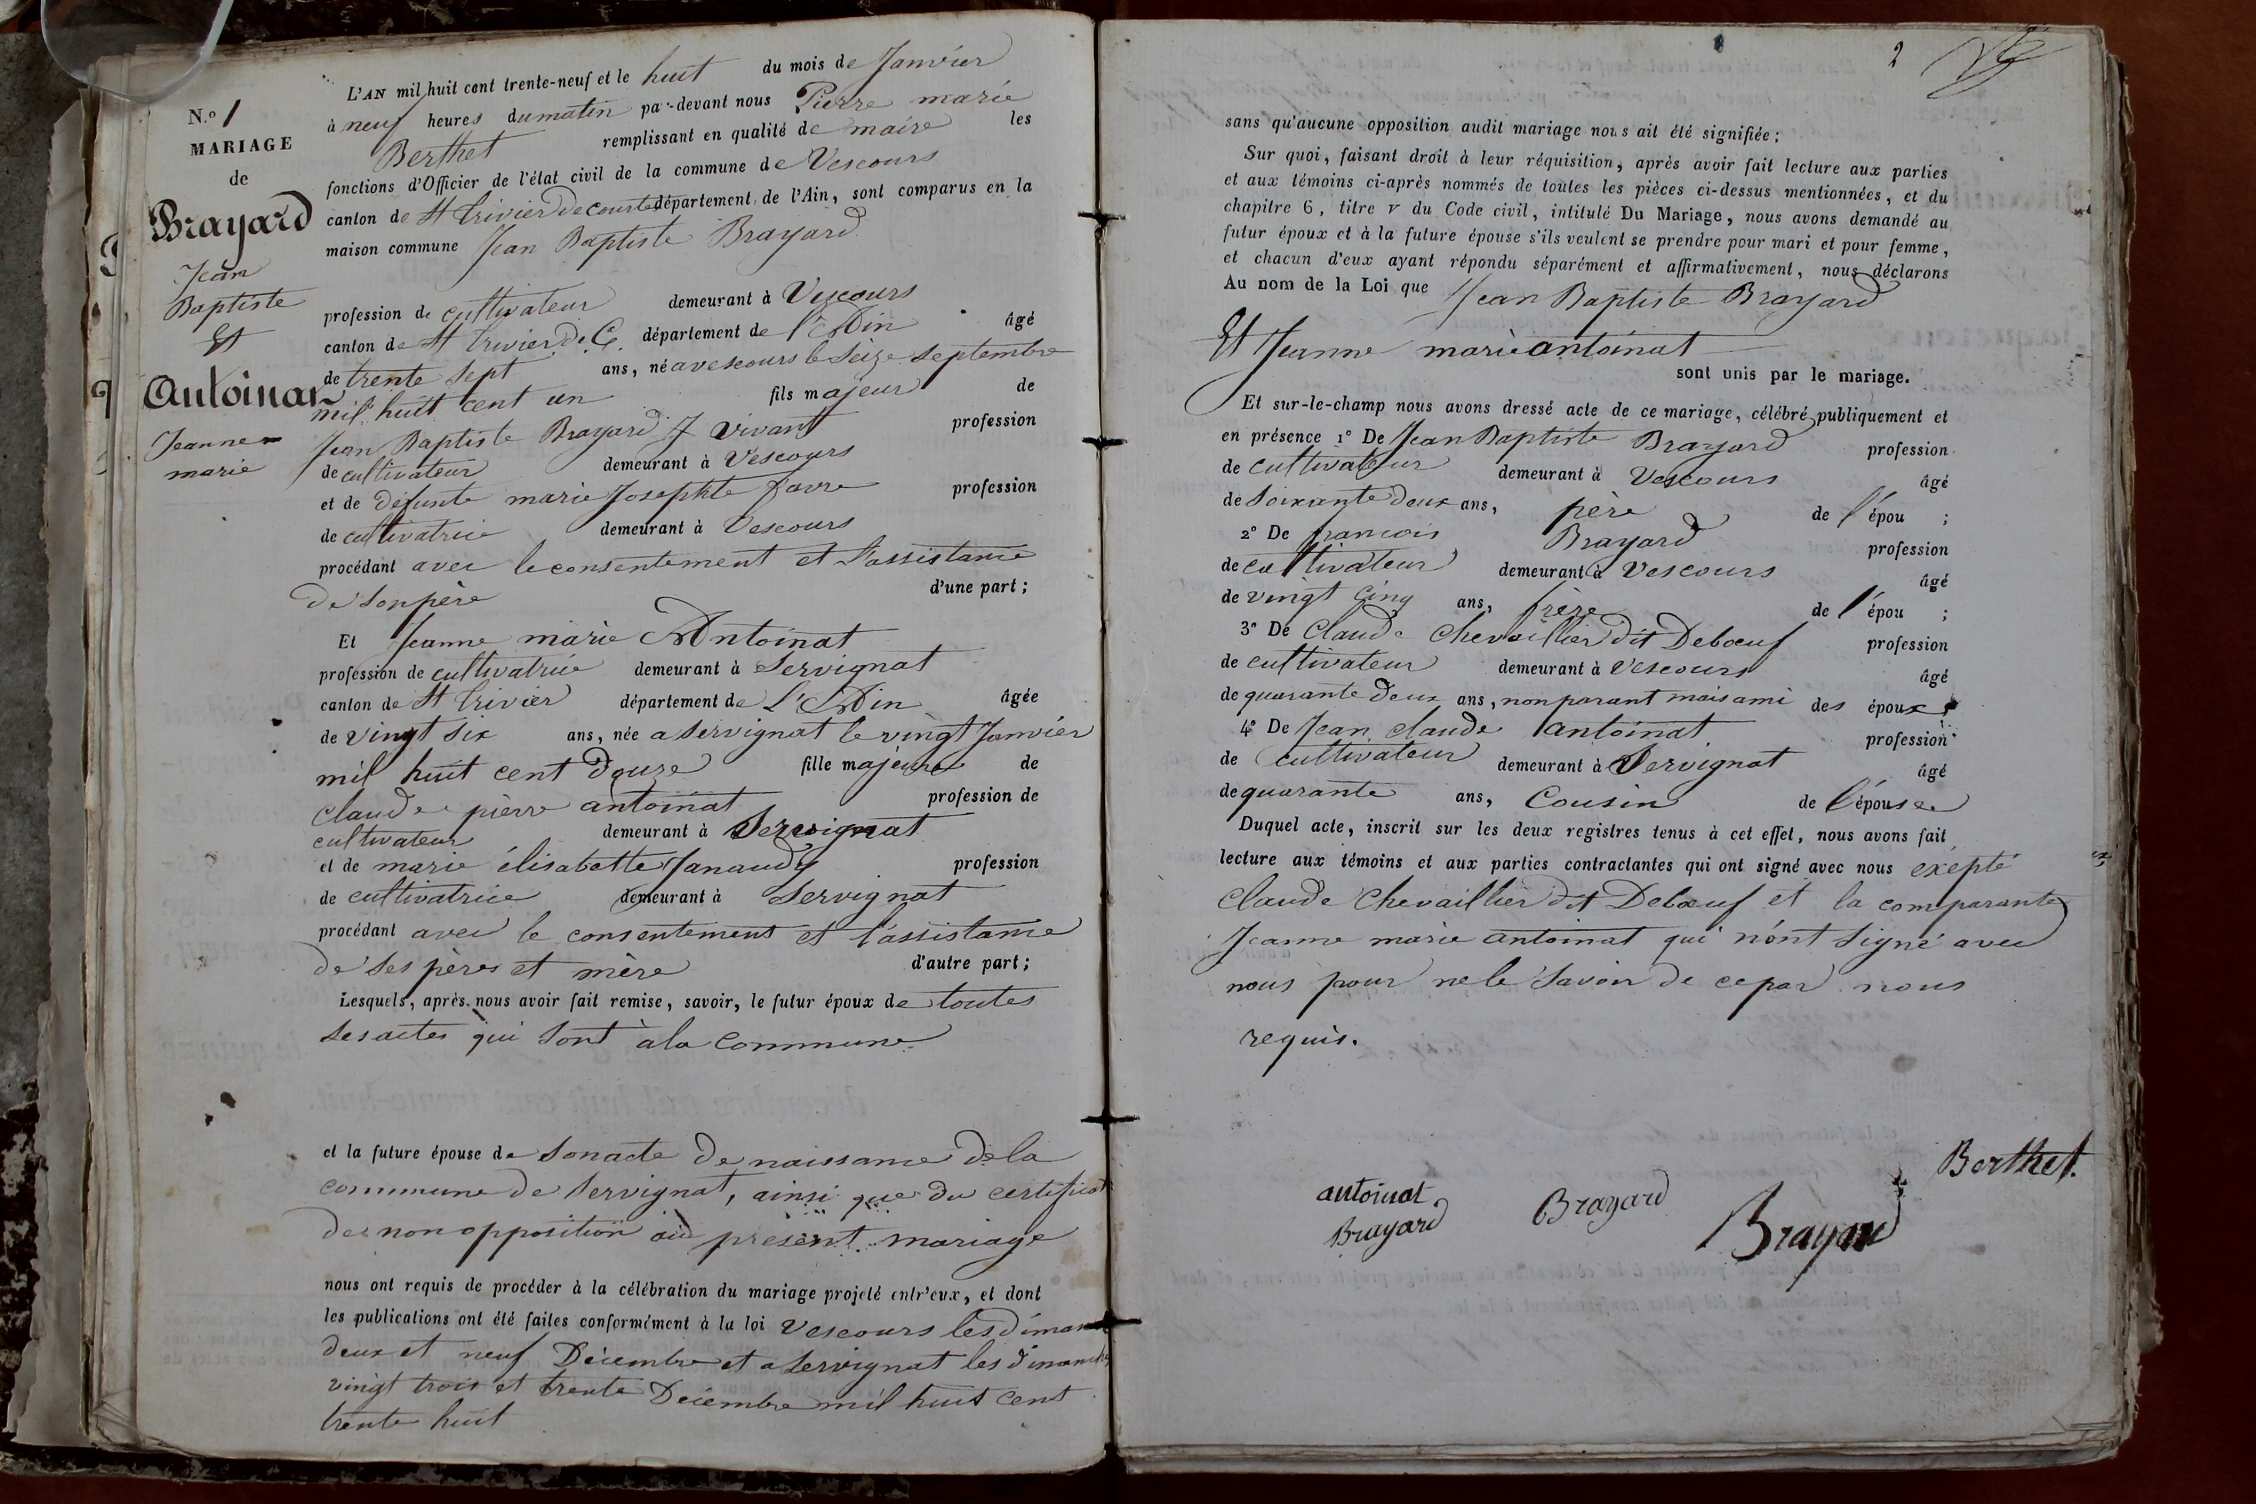 N.o 1
MARIAGE
de
Brayard
Jean
Baptiste
Et
Antoinat
Jeanne
marie
L'AN mil huit cent trente-neuf et le huit du mois de Janvier
à neuf heures du matin par-devant nous Pierre marie
Berthet remplissant en qualité de maire les
fonctions d'Officier de l'état civil de la commune de Vescours
canton de St trivier de courtes département de l'Ain, sont comparus en la
maison commune Jean Baptiste Brayard
profession de cultivateur demeurant à Vescours
canton de St trivier de C. département de l'Ain âgé
de trente sept ans, né a vescours le Seize Septembre
mil huit cent un fils majeur de
Jean Baptiste Brayard vivant profession
de cultivateur demeurant à Vescours
et de défunte marie Josephte favre profession
de cultivatrice demeurant à Vescours
procédant avec le consentement et l'assistance
de son père d'une part;
Et Jeanne marie Antoinat
profession de cultivatrice demeurant à Servignat
canton de St trivier département de L'Ain âgée
de vingt six ans, née a servignat le vingt Janvier
mil huit cent douze fille majeure de
claude pierre antoinat profession de
cultivateur demeurant à Servignat
et de marie élisabette Janaudy profession
de cultivatrice demeurant à Servignat
procédant avec le consentement et l'assistance
de ses pères et mère d'autre part;
Lesquels, après nous avoir fait remise, savoir, le futur époux de toutes
ses actes qui sont à la commune
et la future épouse de son acte de naissance de la
commune de servignat, ainsi que du certificat
de non opposition au présent mariage
nous ont requis de procéder à la célébration du mariage projeté entr'eux, et dont
les publications ont été faites conformément à la loi vescours les diman
deux et neuf Décembre et a servignat les dimanches
vingt trois et trente Décembre mil huit cent
trente huit
2
sans qu'aucune opposition audit mariage nous ait été signifiée;
Sur quoi, faisant droit à leur réquisition, après avoir fait lecture aux parties
et aux témoins ci-après nommés de toutes les pièces ci-dessus mentionnées, et du
chapitre 6, titre v du Code civil, intitulé Du Mariage, nous avons demandé au
futur époux et à la future épouse s'ils veulent se prendre pour mari et pour femme,
et chacun d'eux ayant répondu séparément et affirmativement, nous déclarons
Au nom de la Loi que Jean Baptiste Brayard
Et Jeanne marie antoinat
sont unis par le mariage.
Et sur-le-champ nous avons dressé acte de ce mariage, célébré publiquement et
en présence 1° De Jean Baptiste Brayard profession
de cultivateur demeurant à Vescours âgé
de soixante deux ans, père de l'épou ;
2° De francois Brayard profession
de cultivateur demeurant à Vescours âgé
de vingt cinq ans, frère de l'épou ;
3° De Claude Chevaillier dit Deboeuf profession
de cultivateur demeurant à Vescours âgé
de quarante deux ans, non parant mais ami des époux ;
4° De Jean claude antoinat profession
de cultivateur demeurant à Servignat âgé
de quarante ans, Cousin de l'épouse
Duquel acte, inscrit sur les deux registres tenus à cet effet, nous avons fait
lecture aux témoins et aux parties contractantes qui ont signé avec nous exepté
claude Chevaillier dit Deboeuf et la comparante
Jeanne marie antoinat qui n'ont signé avec
nous pour ne le savoir de ce par nous
requis.
Berthet.
antoinat
Brayard
Brayard
Brayard